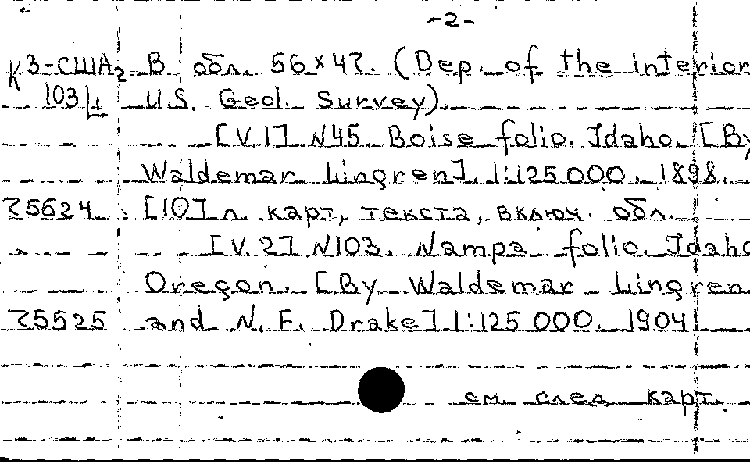 -2-
К 3-США2 В обл. 56×47. (Dep. of the interior
103/1 U.S. Geol. Survey).
[V.1] N45 Boise folio. Idaho. [By
Waldemar Lingren]. 1:125 000. 1898.
25624 [10] л. карт, текста, включ. обл.
[V.2] N103. Nampa folio. Idaho
Oregon. [By Waldemar Lingren
25525 and N. F. Drake] 1:125 000. 1904
см. след карт.